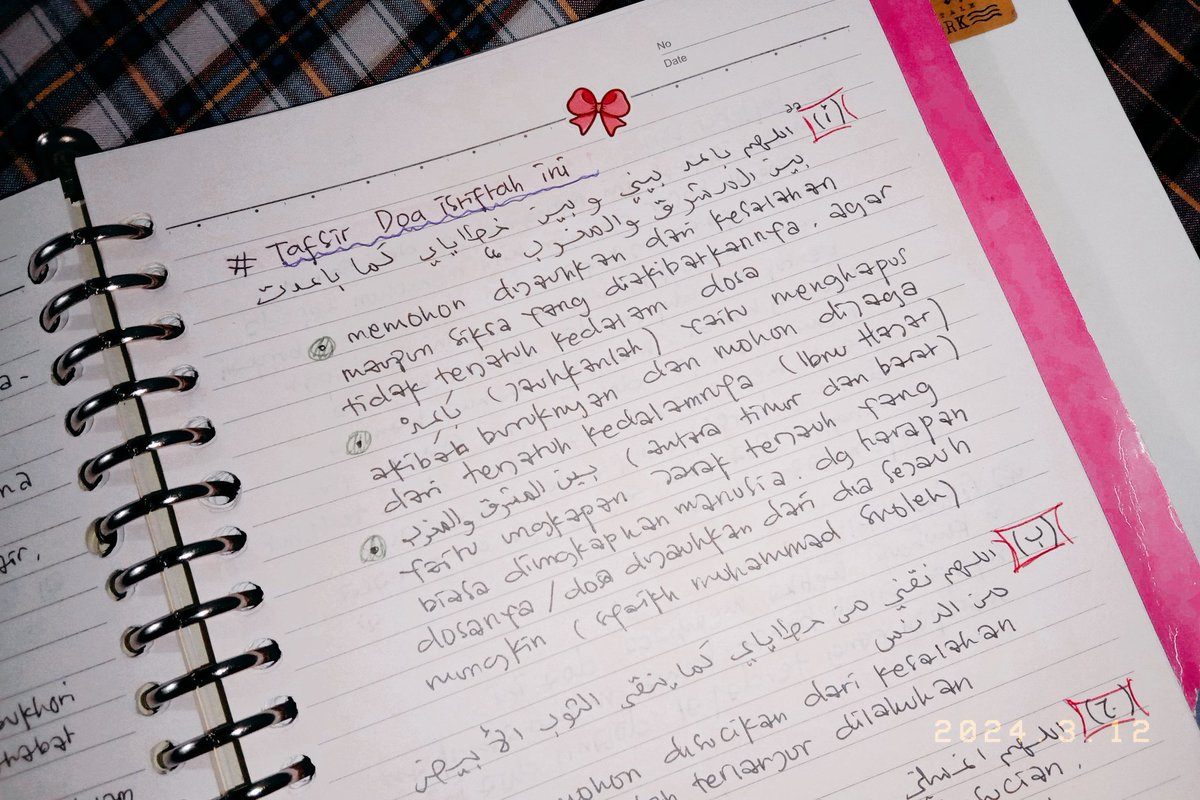 No
Date
# Tafsir Doa istiftah ini
(أ) اللهم باعد بيني وبين خطاياي كما باعدت
بين المشرق والمغرب
memohon dijauhkan dari kesalahan
maupun siksa yang diakibatkannya. agar
tidak terjatuh kedalam dosa
(Jauhkanlah) yaitu menghapus
akibab buruknya dan mohon dijaga
dari terjatuh kedalamnya (Ibnu Hajar)
بين المشرق والمغرب (antara timur dan barat)
yaitu ungkapan Jarak terjauh yang
biasa diungkapkan manusia. dg harapan
dosanya / dosa dijauhkan dari dia sejauh
mungkin (Syaikh muhammad Sholeh)
(ب) اللهم نقني من خطاياي كما ينقى الثوب الأبيض
من الدنس
mohon disucikan dari kesalahan
terlanjur dilakukan
(ج) اللهم اغسلني
2024 3 12
ukhori